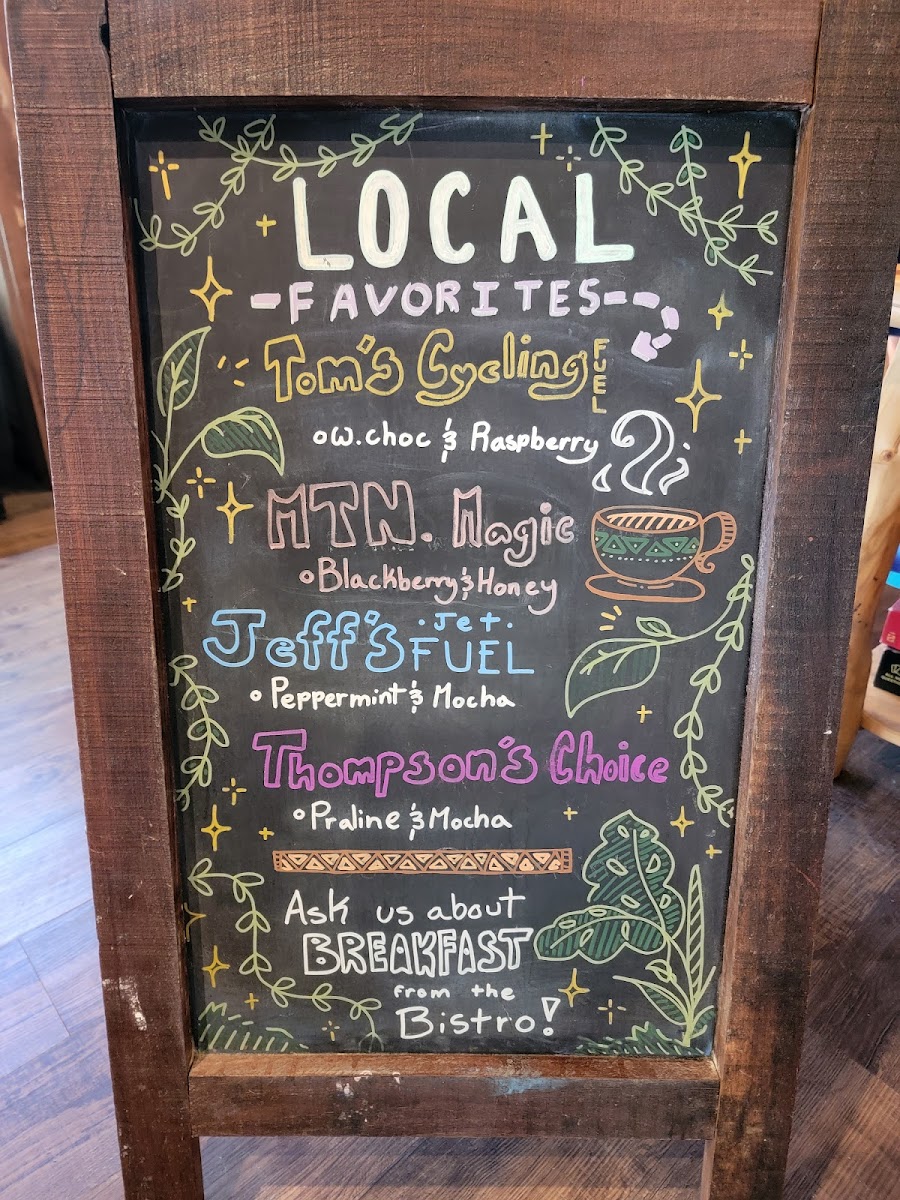 LOCAL
-FAVORITES--
Tom's Cycling FUEL
w. choc & Raspberry
MTN. Magic
Blackberry & Honey
Jeff's .Jet. FUEL
Peppermint & Mocha
Thompson's Choice
Praline & Mocha
Ask us about
BREAKFAST
from the
Bistro!